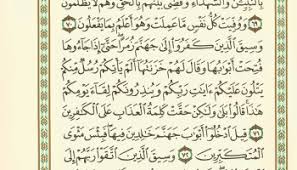 بِالنَّبِيِّينَ وَالشُّهَدَاءِ وَقُضِيَ بَيْنَهُم بِالْحَقِّ وَهُمْ لَا يُظْلَمُونَ
٦٩ وَوُفِّيَتْ كُلُّ نَفْسٍ مَّا عَمِلَتْ وَهُوَ أَعْلَمُ بِمَا يَفْعَلُونَ ٧٠
وَسِيقَ الَّذِينَ كَفَرُوا إِلَىٰ جَهَنَّمَ زُمَرًا حَتَّىٰ إِذَا جَاءُوهَا
فُتِحَتْ أَبْوَابُهَا وَقَالَ لَهُمْ خَزَنَتُهَا أَلَمْ يَأْتِكُمْ رُسُلٌ مِّنكُمْ
يَتْلُونَ عَلَيْكُمْ آيَاتِ رَبِّكُمْ وَيُنذِرُونَكُمْ لِقَاءَ يَوْمِكُمْ
هَٰذَا قَالُوا بَلَىٰ وَلَٰكِنْ حَقَّتْ كَلِمَةُ الْعَذَابِ عَلَى الْكَافِرِينَ
٧١ قِيلَ ادْخُلُوا أَبْوَابَ جَهَنَّمَ خَالِدِينَ فِيهَا فَبِئْسَ مَثْوَى
الْمُتَكَبِّرِينَ ٧٢ وَسِيقَ الَّذِينَ اتَّقَوْا رَبَّهُمْ إِلَى